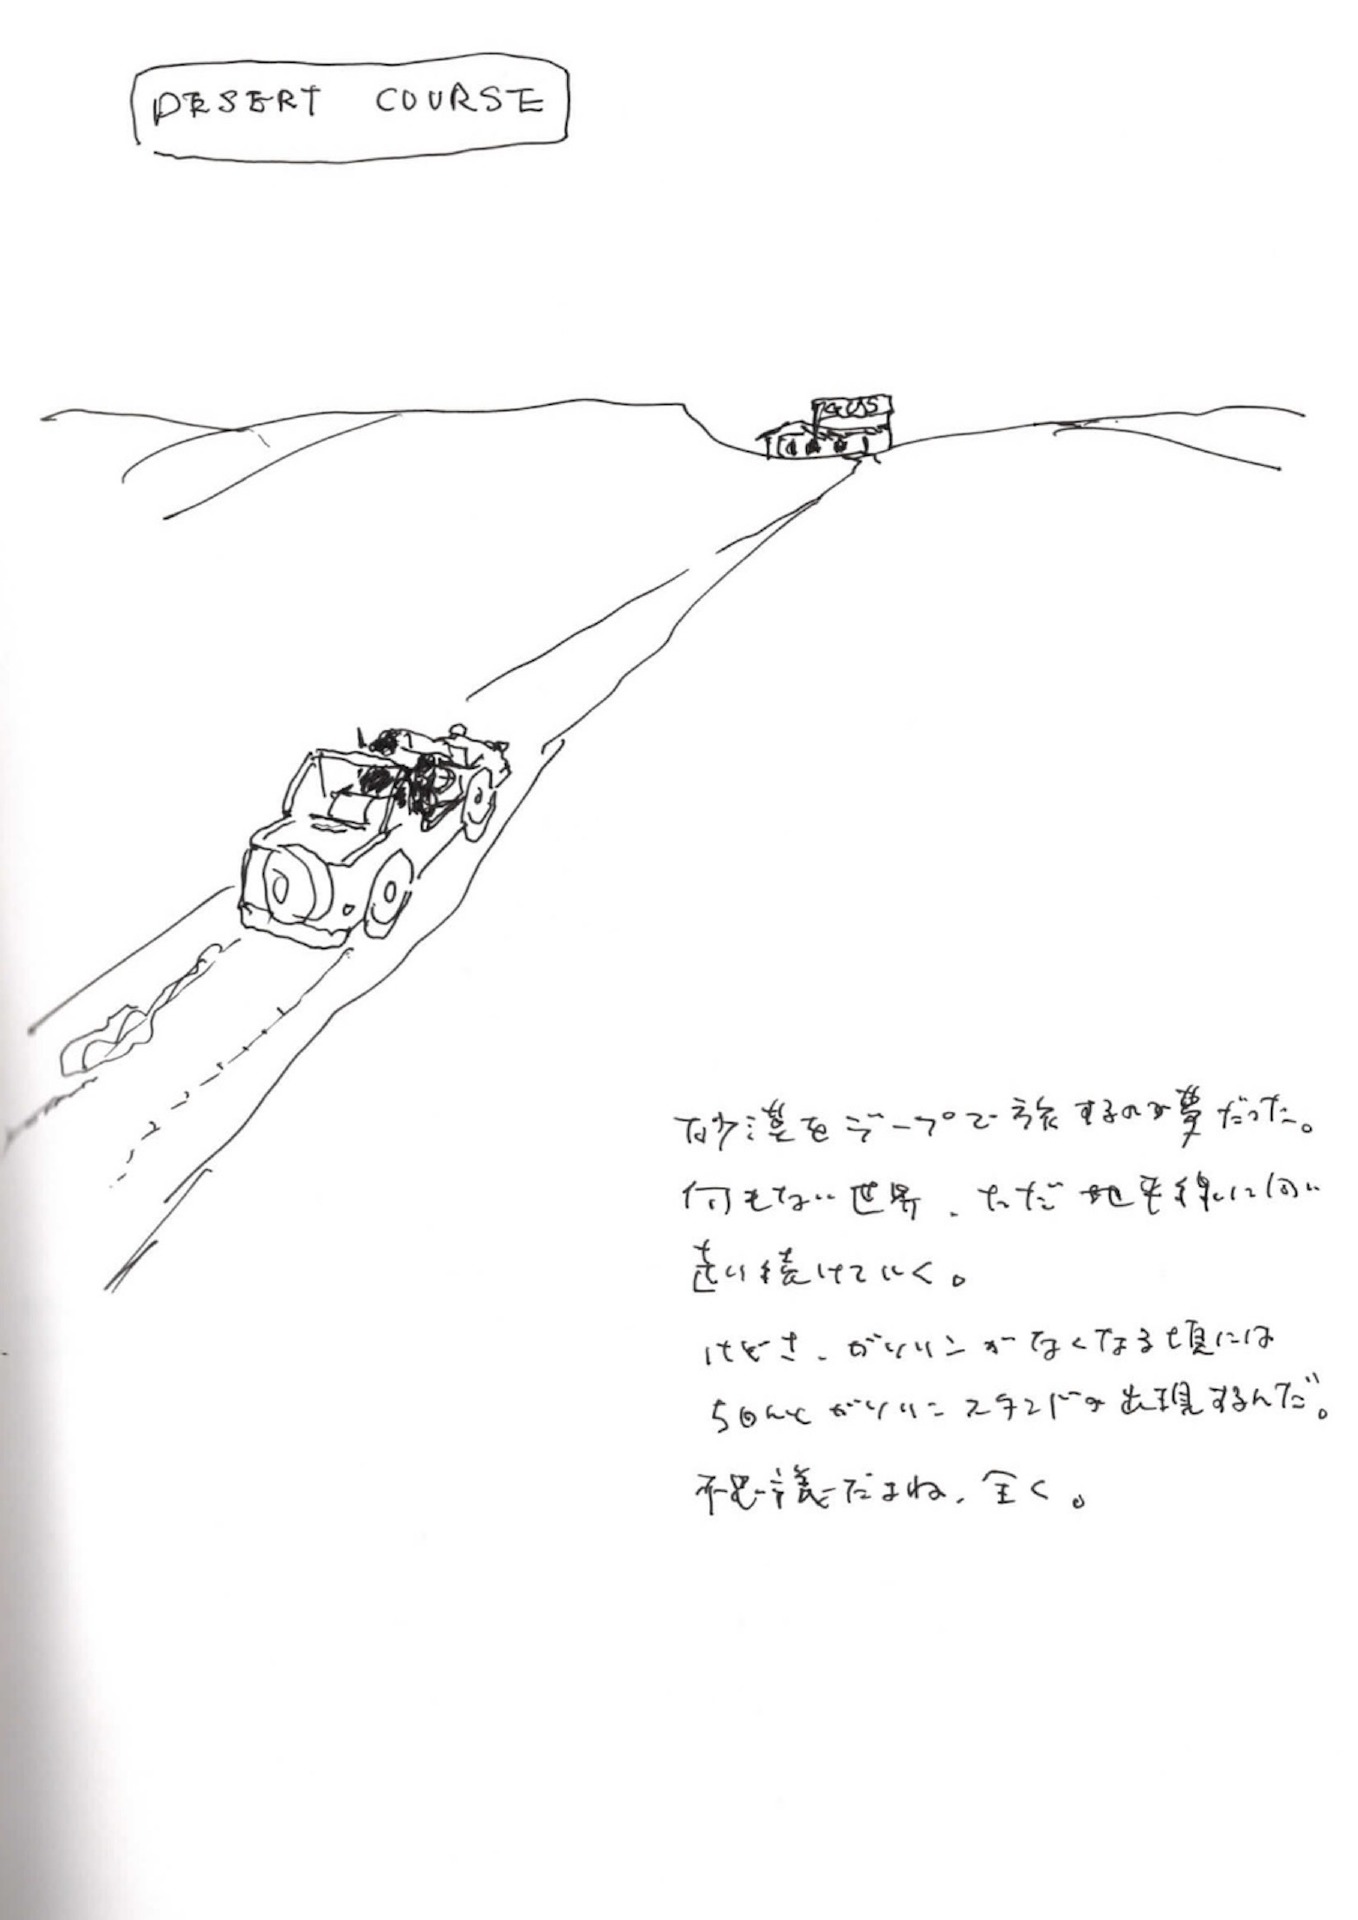 DESERT COURSE
砂漠をジープで旅するのが夢だった。
何もない世界、ただ地平線に向い
走り続けていく。
けどさ、ガソリンがなくなる頃には
ちゃんとガソリンスタンドが出現するんだ。
不思議だよね、全く。